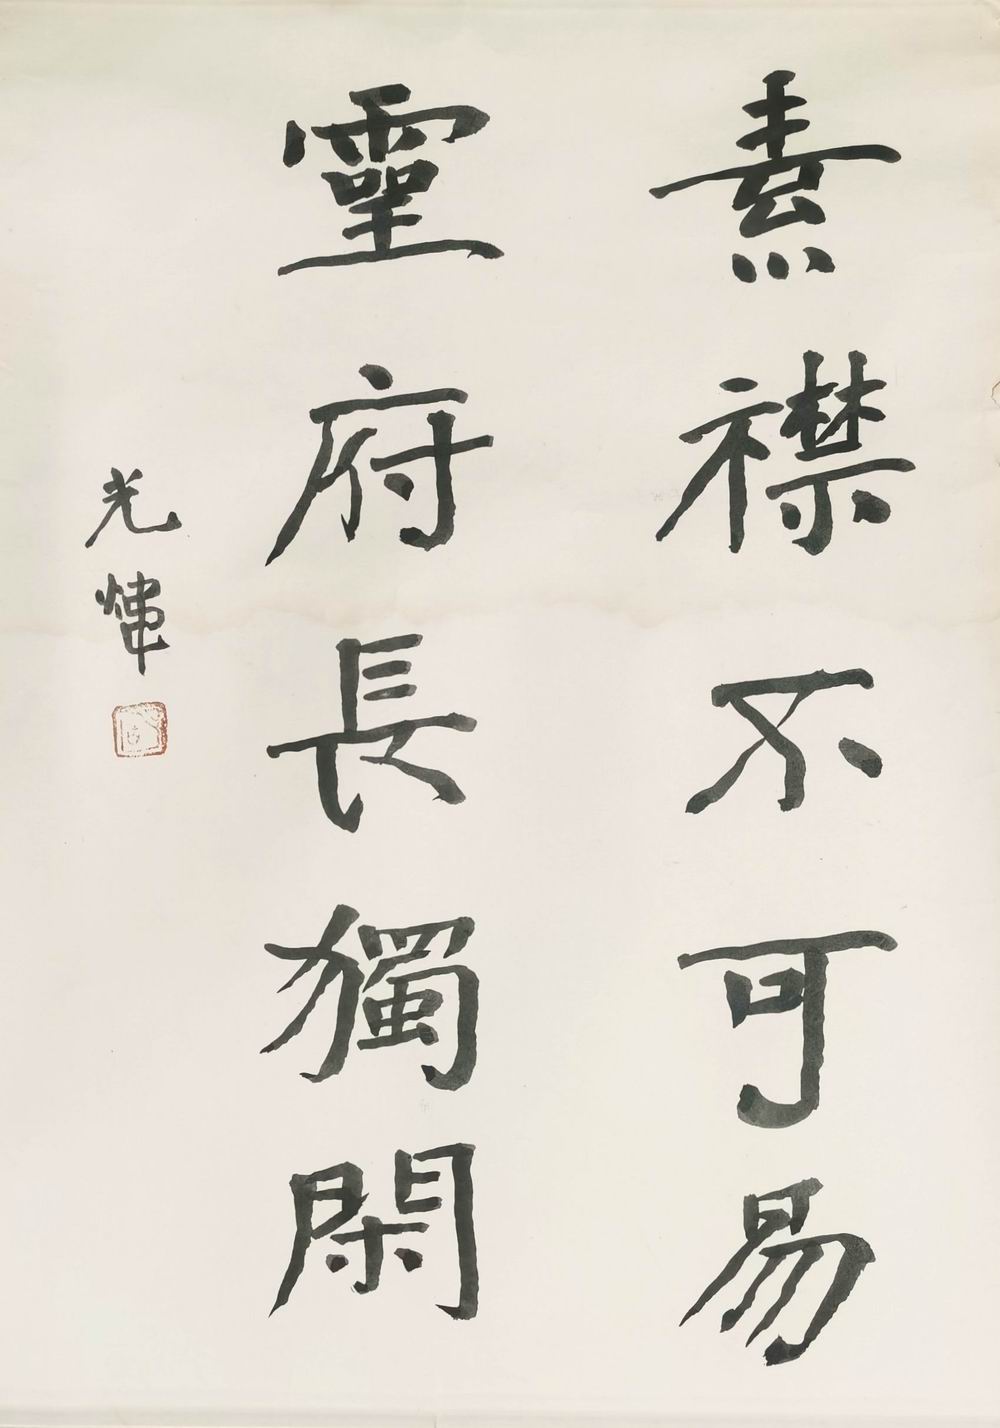 素襟不可易
靈府長獨閑
光煒